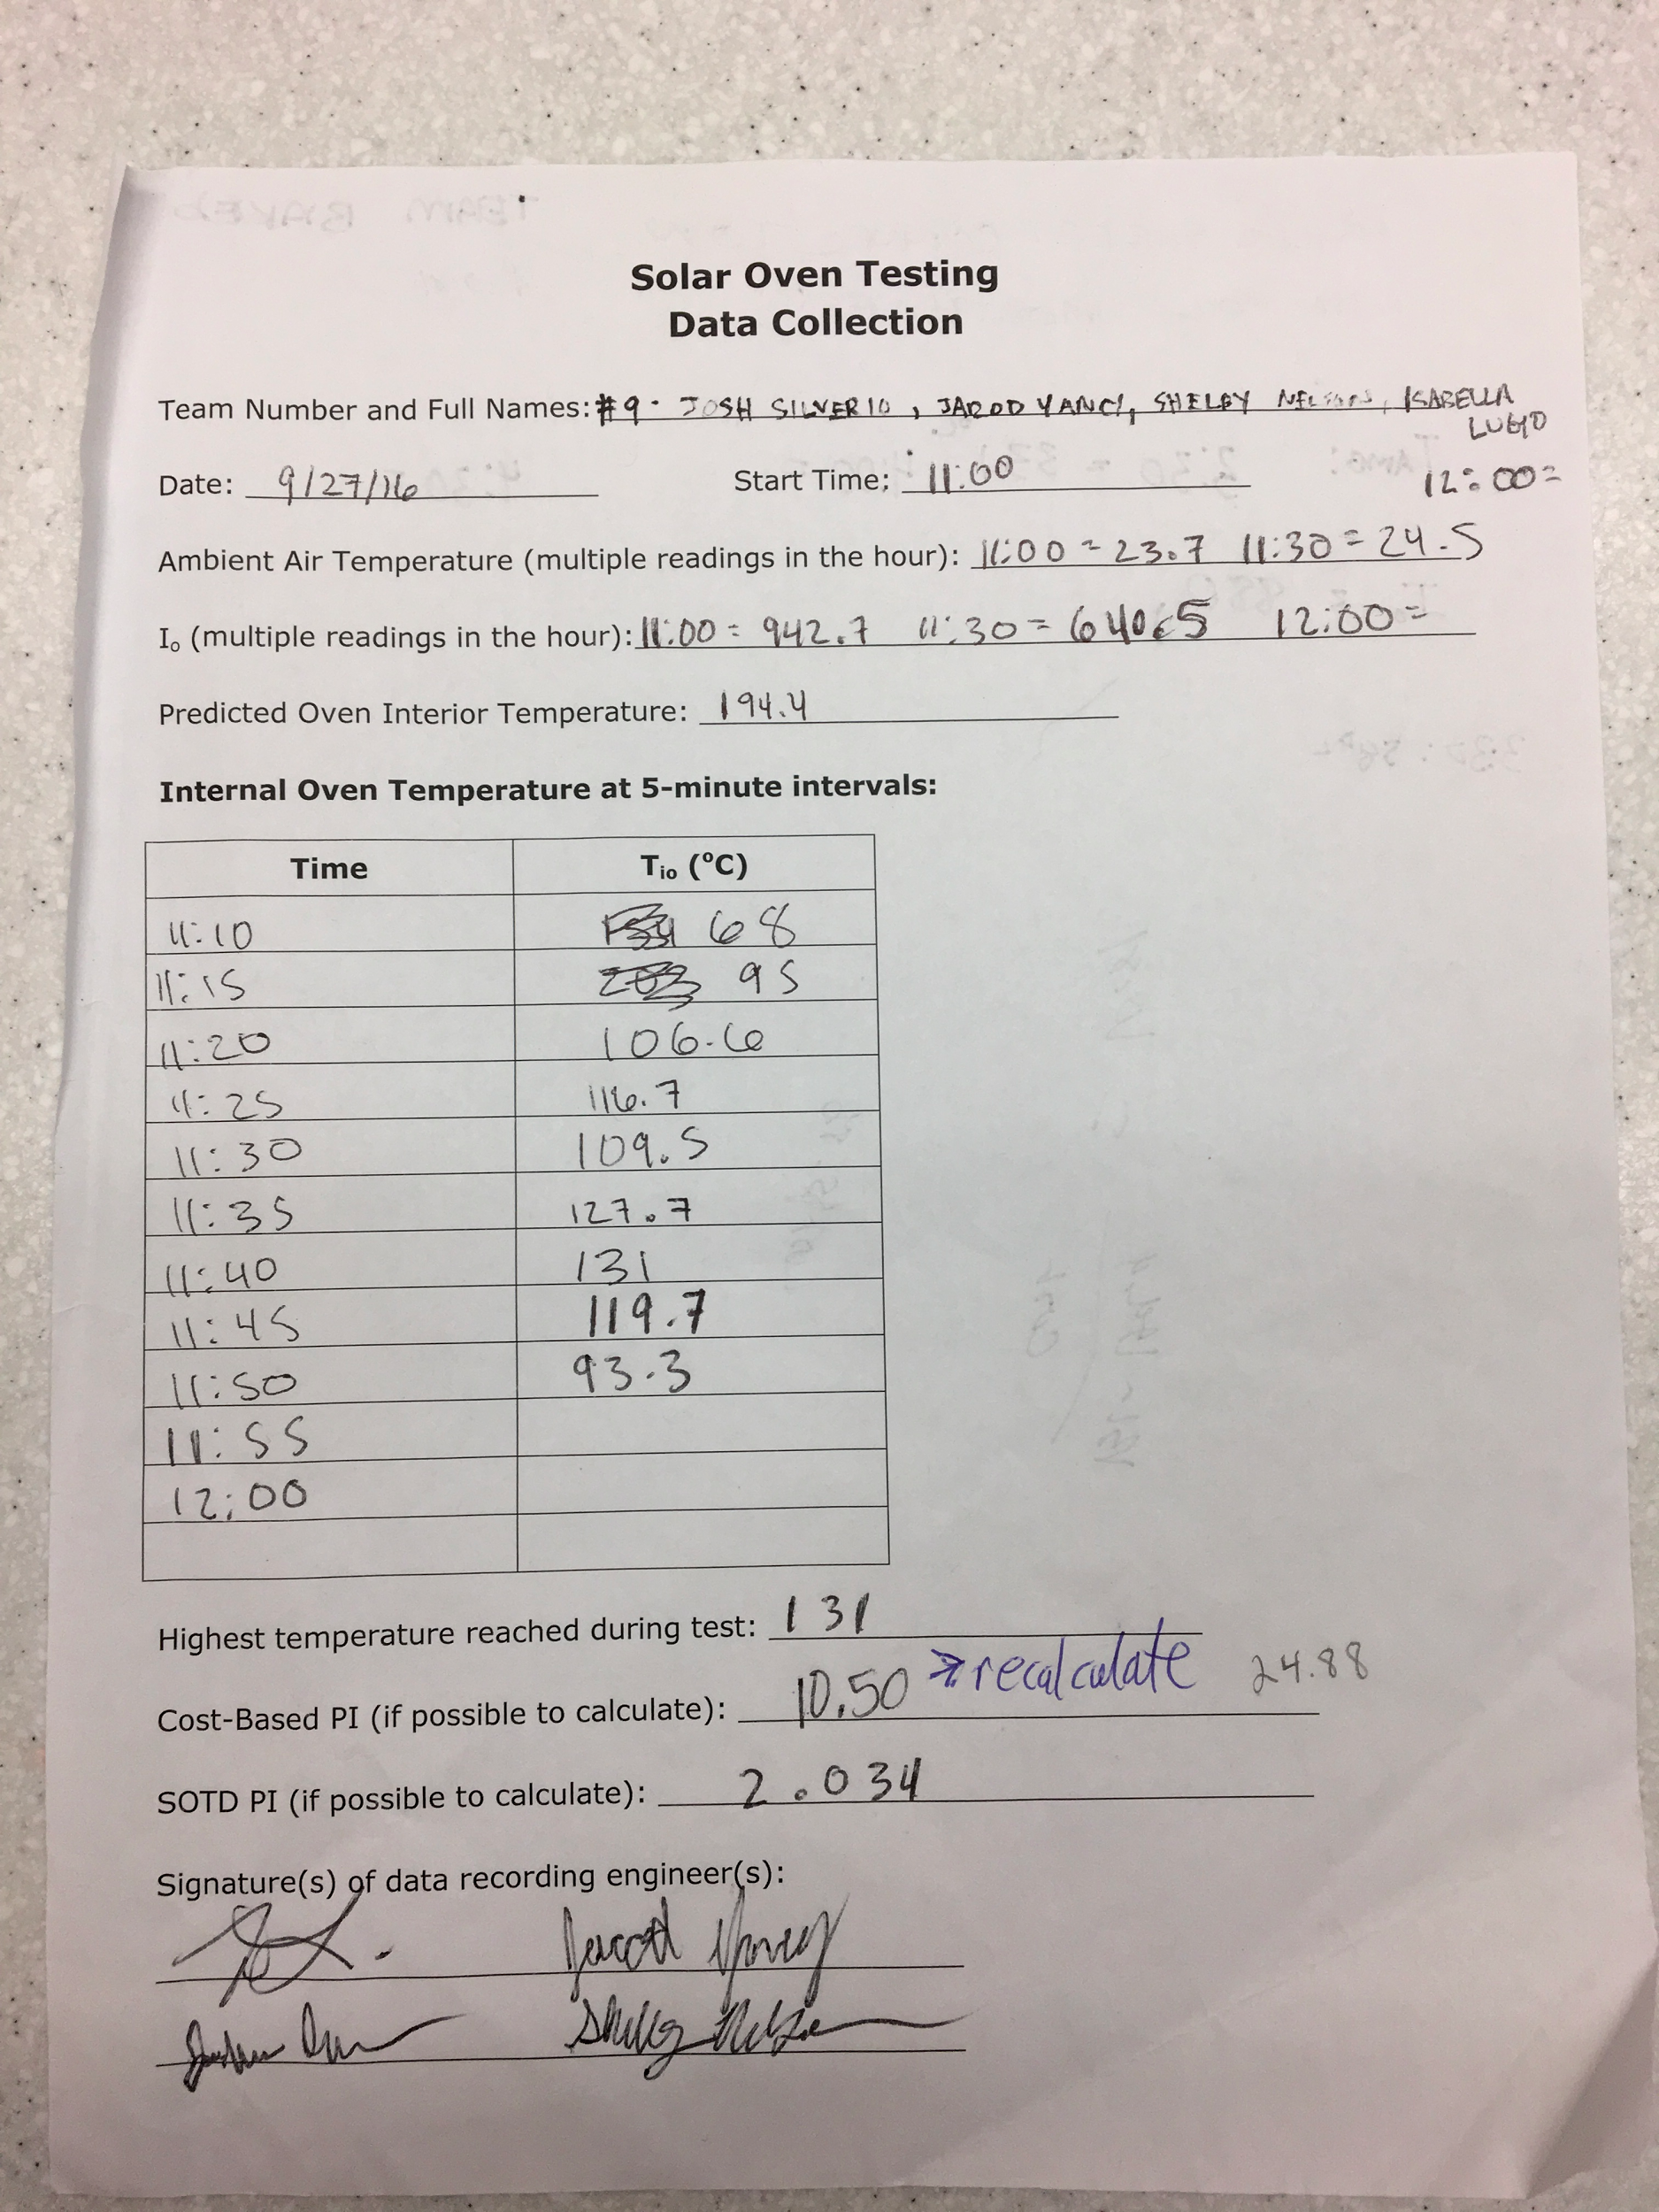 Solar Oven Testing
Data Collection
Team Number and Full Names: #9 - JOSH SILVERIO, JAROD YANCY, SHELBY NELSON, ISABELLA
LUGO
Date: 9/27/16 Start Time: 11:00 12:00=
Ambient Air Temperature (multiple readings in the hour): 11:00 = 23.7 11:30 = 24.5
Io (multiple readings in the hour): 11:00 = 942.7 11:30 = 640.5 12:00 =
Predicted Oven Interior Temperature: 194.4
Internal Oven Temperature at 5-minute intervals:
Time Tio (°C)
11:10 68
11:15 95
11:20 106.6
11:25 116.7
11:30 109.5
11:35 127.7
11:40 131
11:45 119.7
11:50 93.3
11:55
12:00
Highest temperature reached during test: 131
Cost-Based PI (if possible to calculate): 10.50 → recalculate 24.88
SOTD PI (if possible to calculate): 2.034
Signature(s) of data recording engineer(s):
Shelby Nelson